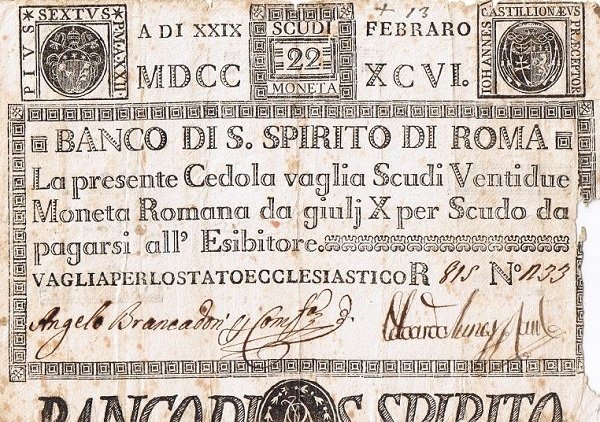 PIVS * SEXTVS * P.M.A.XXII.
+ 13
A DI XXIX SCUDI FEBRARO
MDCC 22 XCVI.
MONETA
IOHANNES CASTILLIONÆVS PRÆCEPTOR
BANCO DI S. SPIRITO DI ROMA
La presente Cedola vaglia Scudi Ventidue
Moneta Romana da giulj X per Scudo da
pagarsi all' Esibitore.
VAGLIA PER LO STATO ECCLESIASTICO R 815 No 1233
Angelo Brancadori
BANCO DI S. SPIRITO